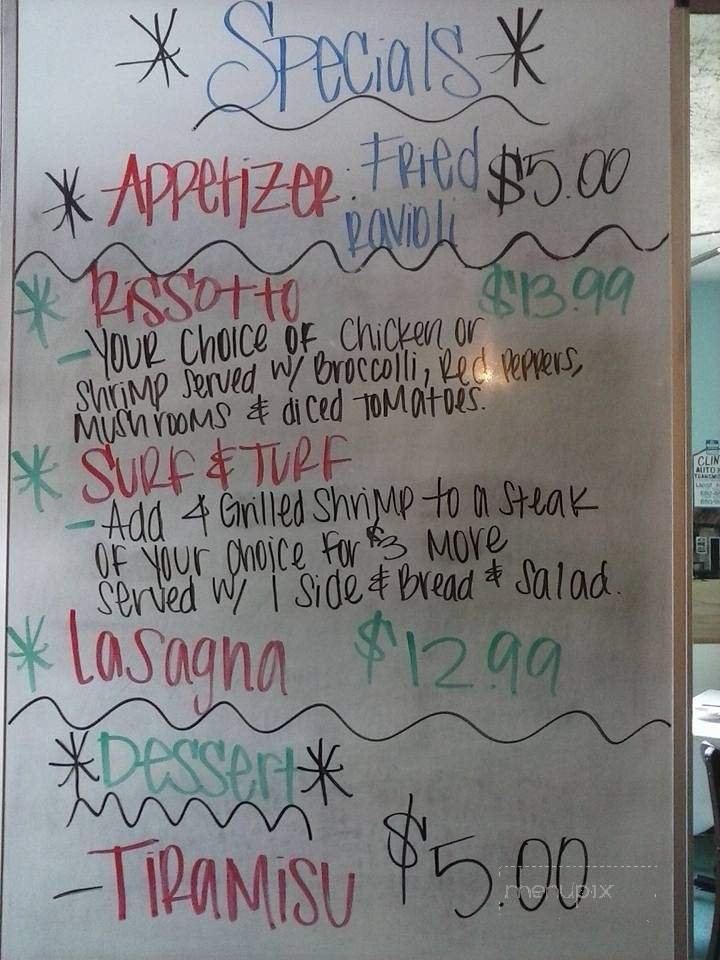 * Specials *
* Appetizer: Fried $5.00
Ravioli
* Rissotto $13.99
- Your choice of chicken or
shrimp served w/ Broccolli, Red Peppers,
Mushrooms & diced tomatoes.
* Surf & Turf
- Add 4 Grilled Shrimp to a steak
of your choice for $3 more
served w/ 1 side & Bread & salad.
* Lasagna $12.99
* Dessert *
- Tiramisu $5.00
menupix
CLIN
AUTO